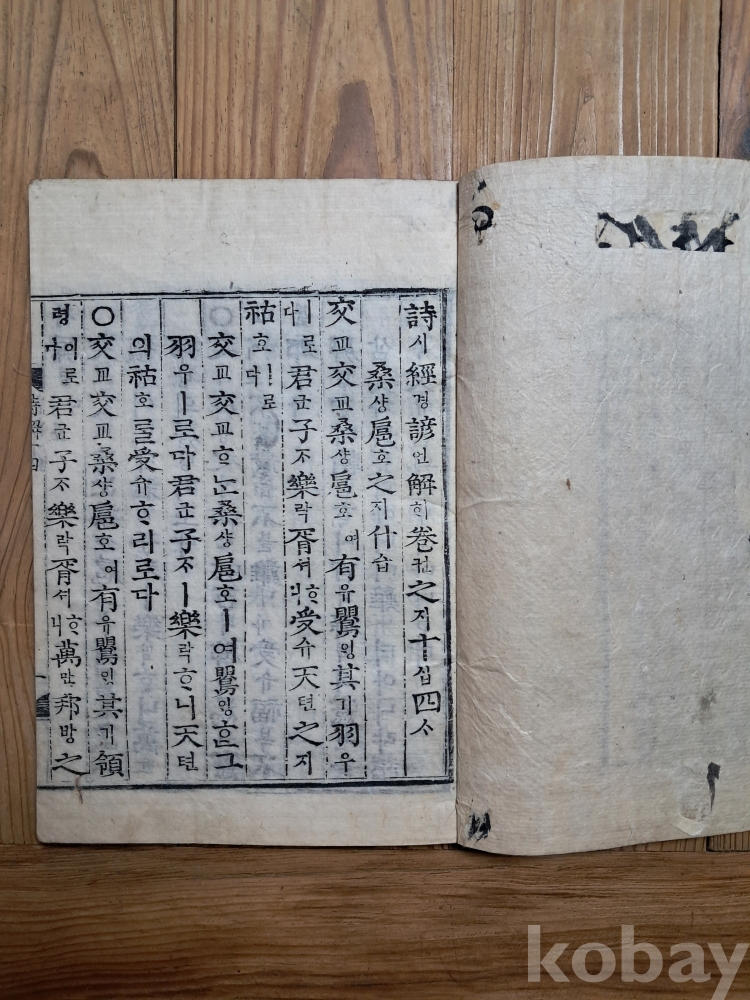 詩시經경諺언解ᄒᆡ卷권之지十십四ᄉᆞ
桑상扈호之지什습
交교交교桑상扈호여有유鶯ᄋᆡᆼ其기羽우
ㅣ로다君군子ᄌᆞ樂락胥셔ᄒᆞ니受슈天텬之지
祜호ㅣ로다
○交교交교ᄒᆞᄂᆞᆫ桑상扈호ㅣ여鶯ᄋᆡᆼᄒᆞᆫ그
羽우ㅣ로다君군子ᄌᆞㅣ樂락ᄒᆞ니天텬
의祜호ᄅᆞᆯ受슈ᄒᆞ리로다
○交교交교桑상扈호여有유鶯ᄋᆡᆼ其기領
령이로다君군子ᄌᆞ樂락胥셔ᄒᆞ니萬만邦방之
kobay